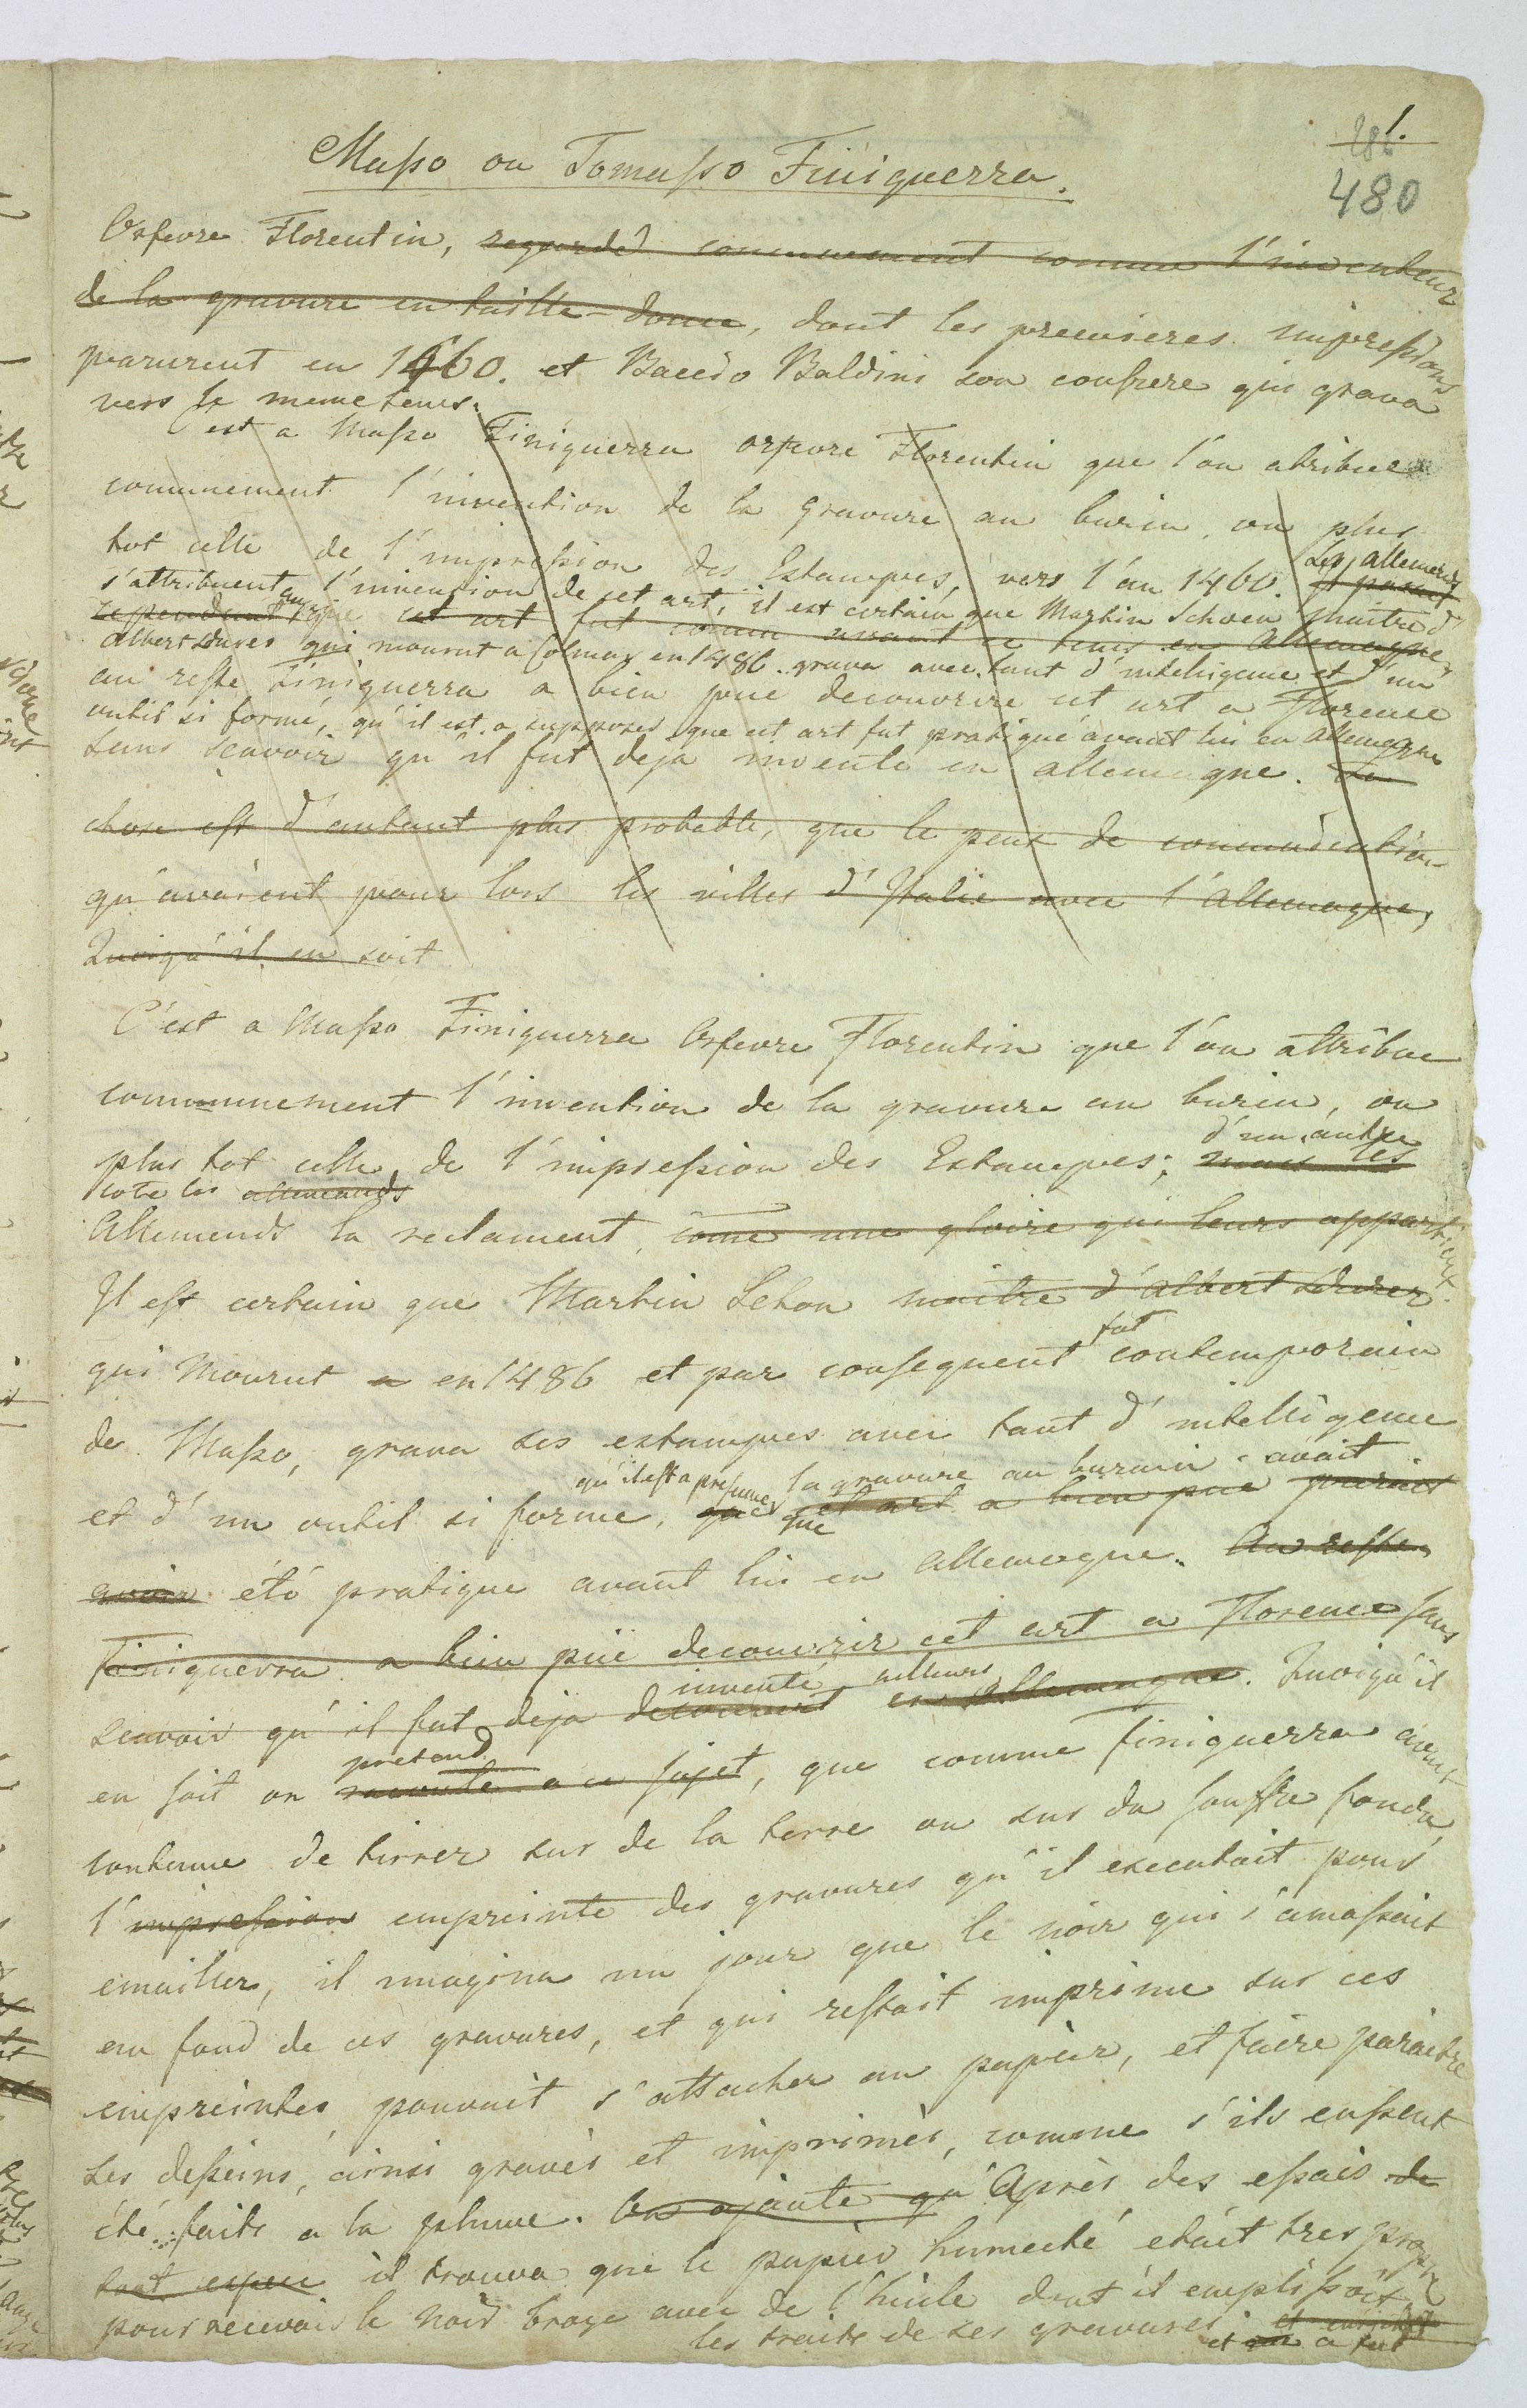 1.
480
Maßo ou Tomaßo Finiguerra.
Orfevre Florentin, regardé communement comme l'inventeur
de la gravure en taille-douce, dont les premieres impreßions
parurent en 1460. et Baccio Baldini son confrere qui grava
vers le meme tems.
C'est a Maßo Finiguerra orfevre Florentin que l'on atribue
communement l'invention de la gravure au burin, ou plus
tot celle de l'impreßion des Estampes, vers l'an 1460. Les allemends
s'attribuent l'invention de cet art, il est certain que Martin Schoen maitre d'
cependent que cet art fut connu avant ce tems en Allemagne,
Albert Durer qui mourut a Colmar en 1486. grava avec tant d'intelligence et d'un
au reste Finiguerra a bien pue decouvrire cet art a Florence
outil si formé, qu'il est a supposer que cet art fut pratiqué avant lui en Allemagne
sans scavoir qu'il fut deja inventé en allemagne. La
chose est d'autant plus probable, que le peux de comunication
qu'avaient pour lors les villes d'Italie avec l'Allemagne,
Quoiqu'il en soit
C'est a Maßo Finiguerra Orfevre Florentin que l'on attribue
communement l'invention de la gravure au burin, ou
d'un autre
plus tot celle de l'impreßion des Estampes; mais les
cote les allemends
Allemends la reclament, come une gloire qui leurs appartient.
Il est certain que Martin Schon maitre d'Albert Durer
fut
qui Mourut a en 1486 et par consequent contemporain
de Maßo, grava ses estampes avec tant d'intelligence
qu'il est a presumer la gravure au burin avait
et d'un outil si forme, que que cet art a bien pue
avoir été pratique avant lui en Allemagne. Au reste
Finiguerra a bien püe decouvrir cet art a Florence sans
inventé ailleurs
scavoir qu'il fut deja decouvert en Allemagne. Quoiqu'il
pretend
en soit on raconte a ce sujet, que comme Finiguerra avait
contume de tirrer sur de la terre ou sur du souffre fondu,
l'impreßion empreinte des gravures qu'il executait pour
emailler, il imagina un jour que le noir qui s'amaßait
au fond de ces gravures, et qui restait imprime sur ces
empreintes pouvait s'attacher au papier, et faire paraitre
les deßeins, ainsi gravés et imprimés, comme s'ils eußent
été faits a la plume. On ajoute qu'Après des eßais de
tout il trouva que le papier humecté etait tres propre
pour recevoir le noir broye avec de l'huile dont il emplißoit
les traits de ses gravures et
et a fait